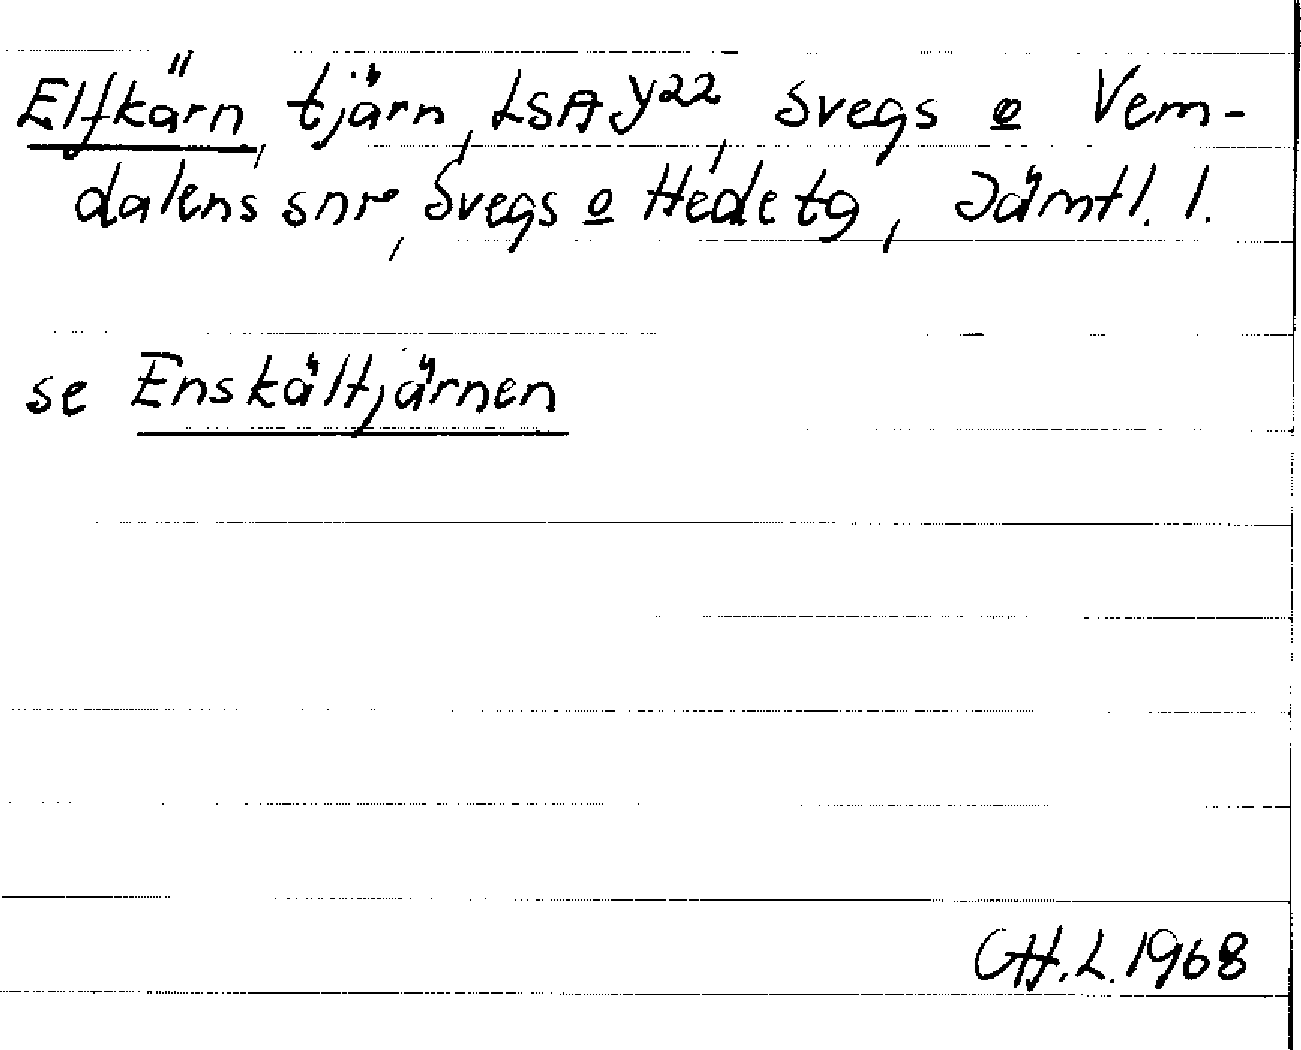 Elfkärn, tjärn, LSA Y22, Svegs o Vem-
dalens snr, Svegs o Hede tg, Jämtl. l.
se Enskältjärnen
G.H.L. 1968